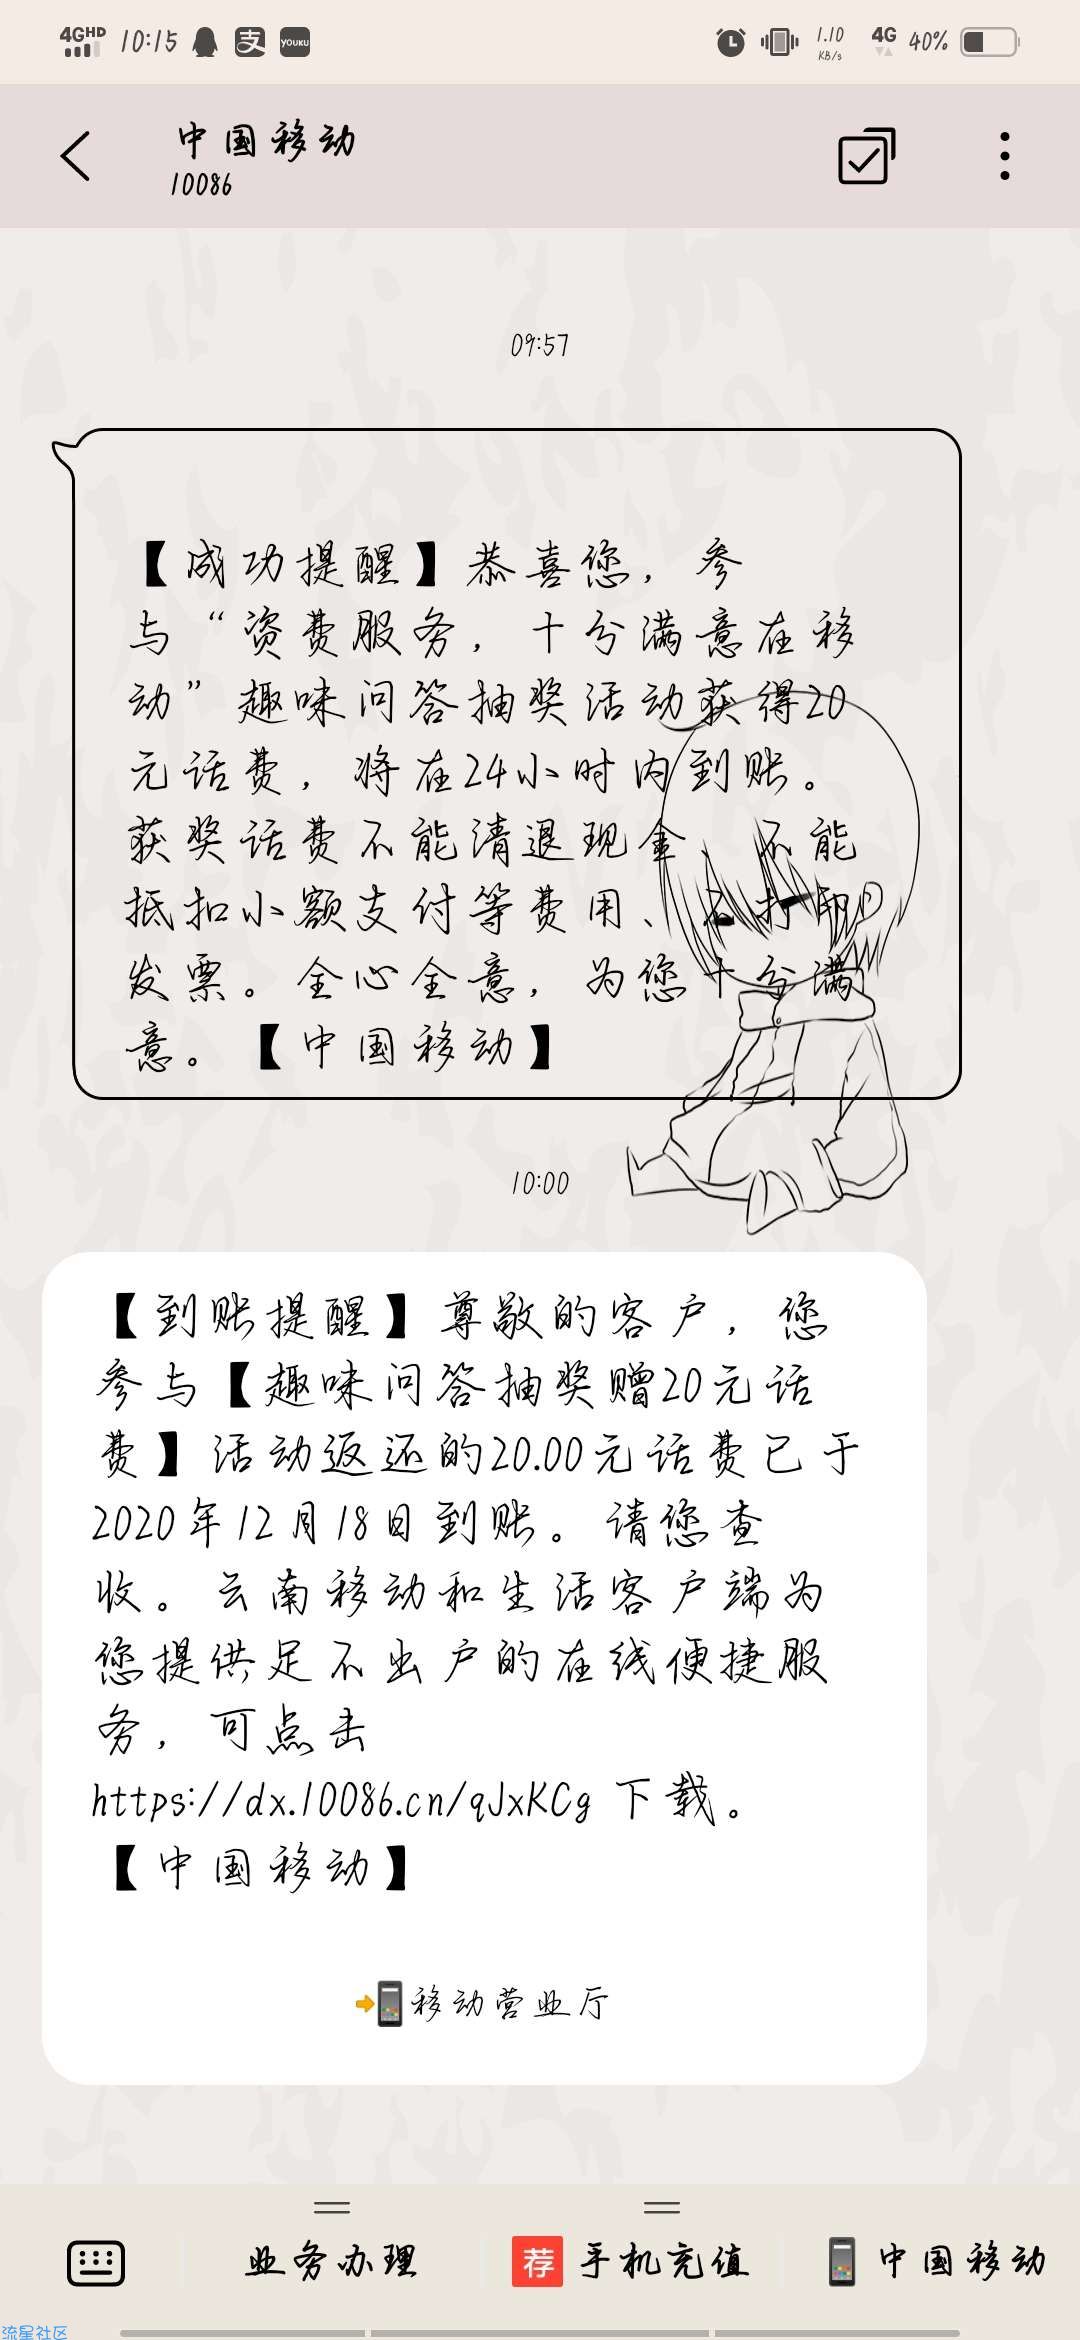 4GHD 10:15 支 YOUKU 1.10 KB/s 4G 40%
中国移动
10086
09:57
【成功提醒】恭喜您，参
与“资费服务，十分满意在移
动”趣味问答抽奖活动获得20
元话费，将在24小时内到账。
获奖话费不能清退现金、不能
抵扣小额支付等费用、不打印
发票。全心全意，为您十分满
意。【中国移动】
10:00
【到账提醒】尊敬的客户，您
参与【趣味问答抽奖赠20元话
费】活动返还的20.00元话费已于
2020年12月18日到账。请您查
收。云南移动和生活客户端为
您提供足不出户的在线便捷服
务，可点击
https://dx.10086.cn/qJxKCg 下载。
【中国移动】
移动营业厅
业务办理 荐 手机充值 中国移动
流星社区